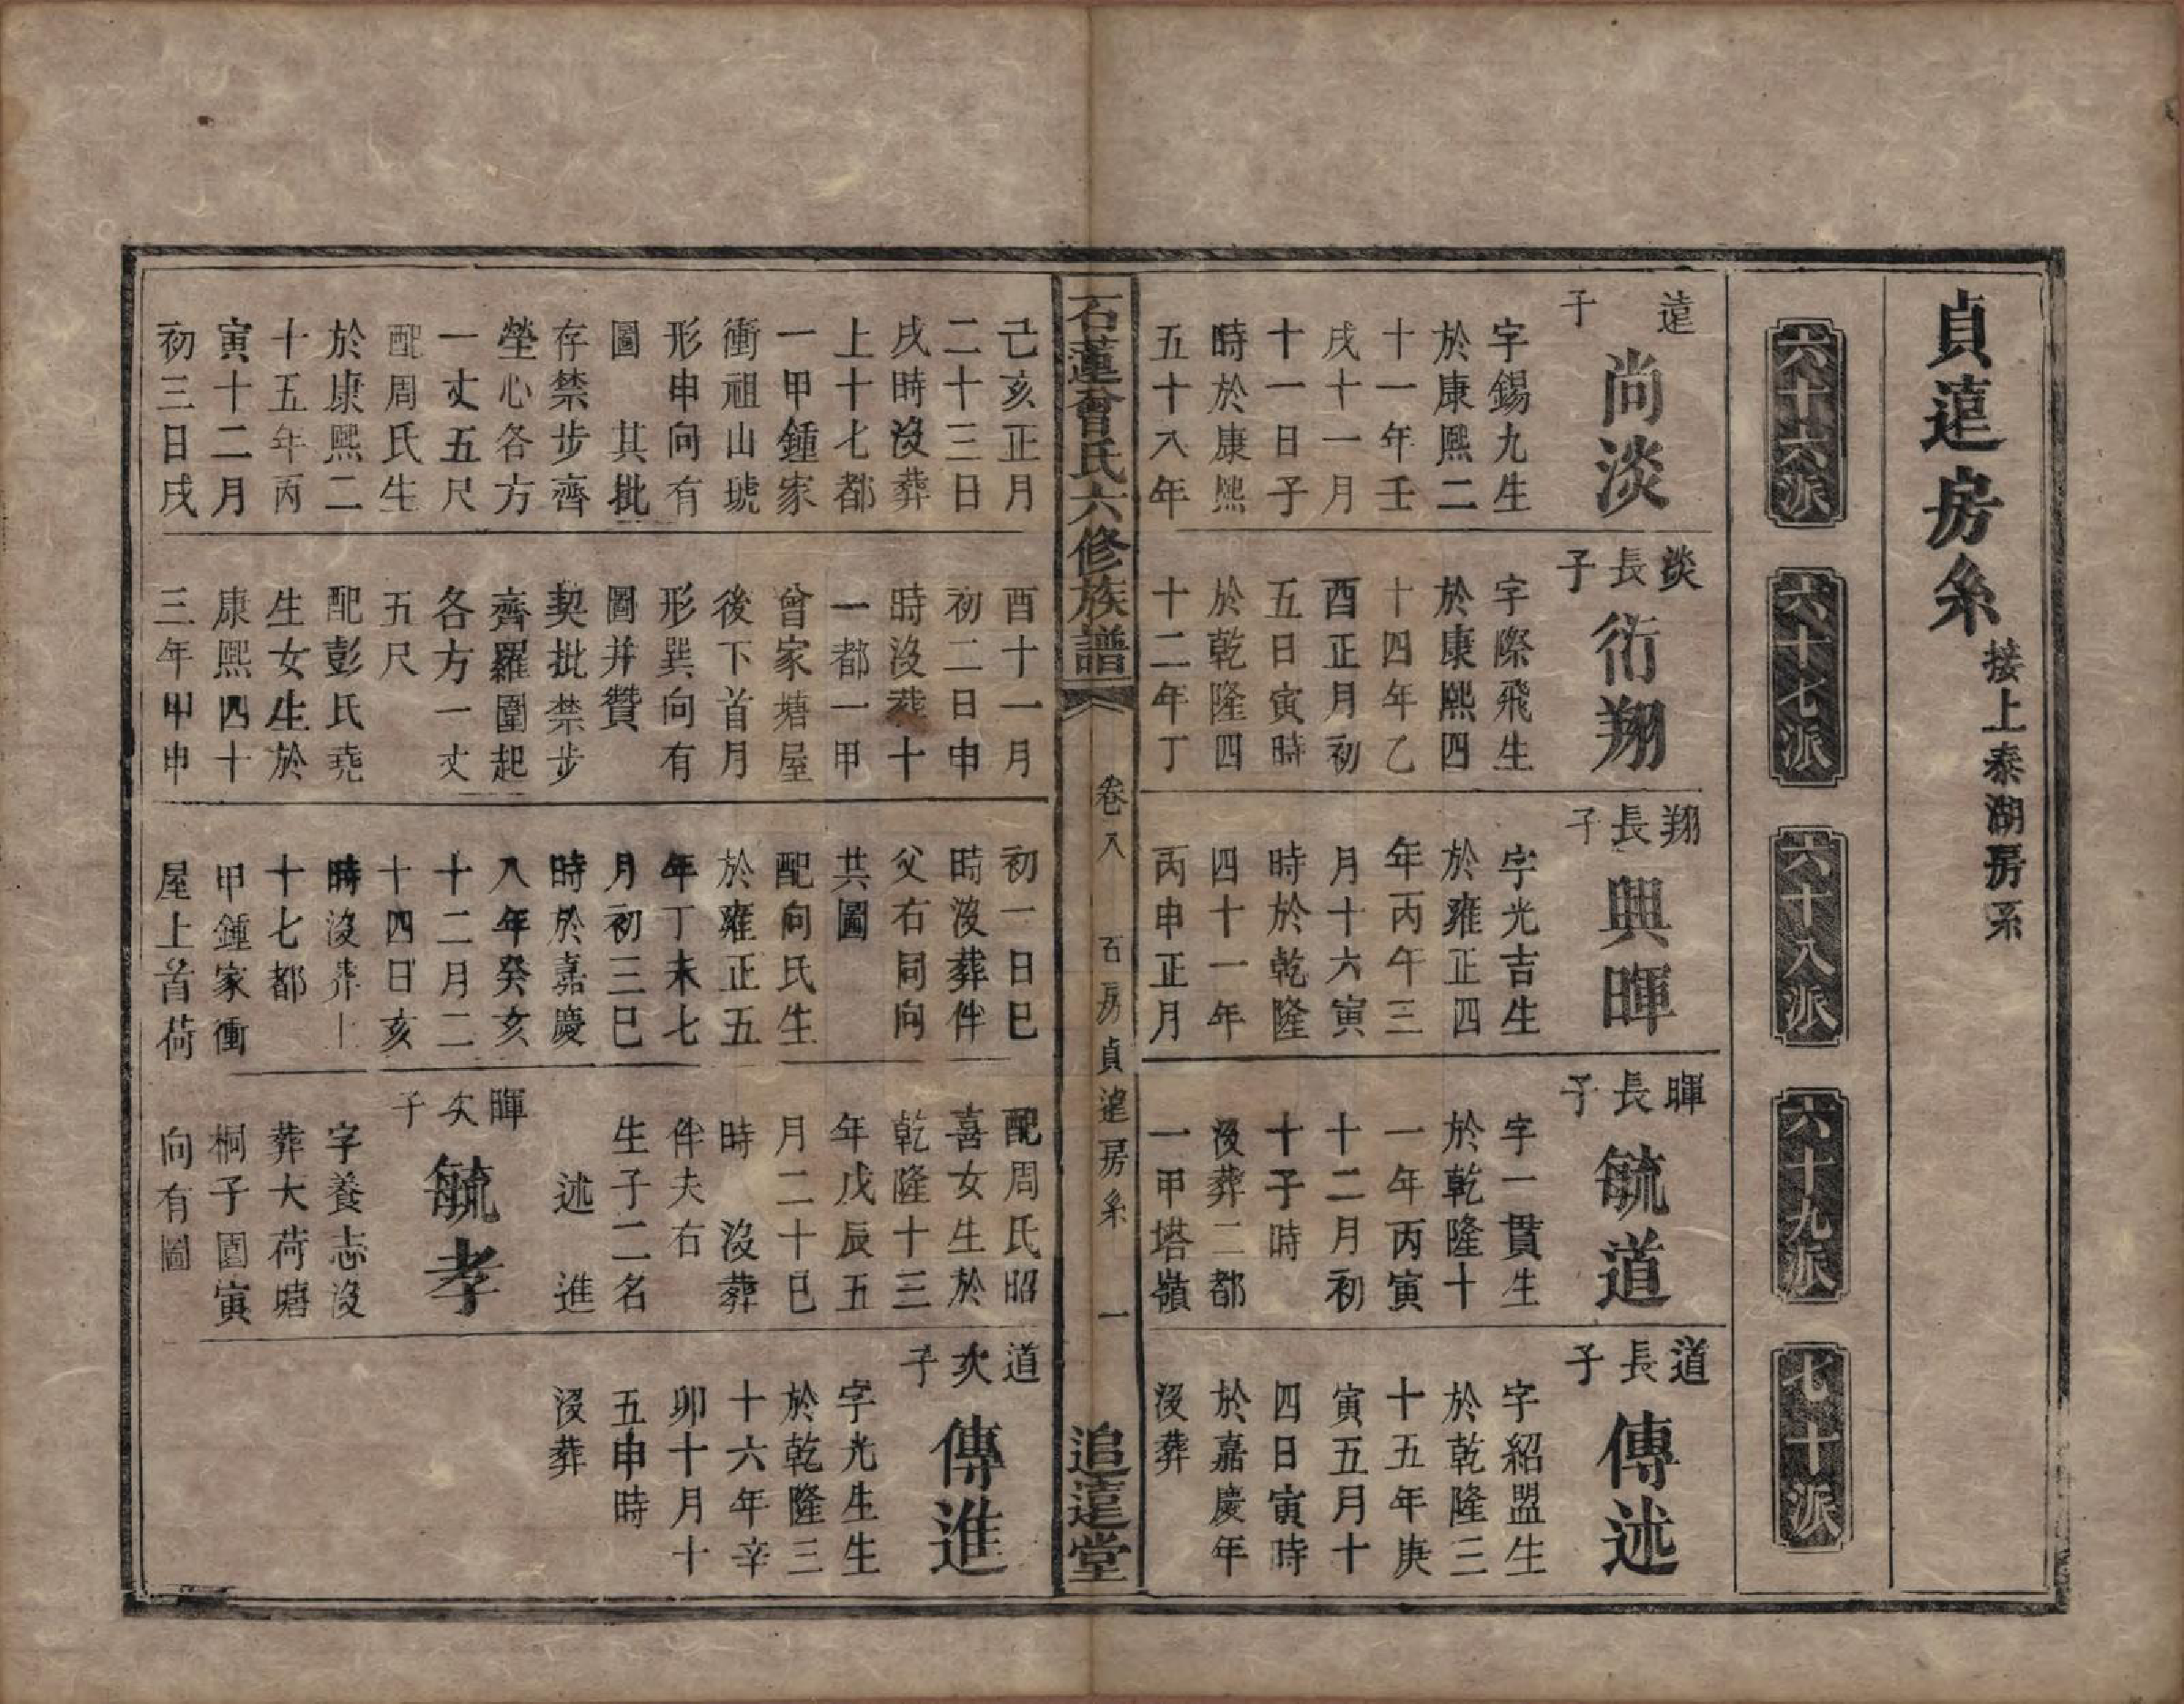 貞遠房系 接上泰湖房系
六十六派
六十七派
六十八派
六十九派
七十派
遠子
尚淡
字錫九生
於康熙二
十一年壬
戌十一月
十一日子
時於康熙
五十八年
淡長子
衍翔
字際飛生
於康熙四
十四年乙
酉正月初
五日寅時
於乾隆四
十二年丁
翔長子
興暉
字光吉生
於雍正四
年丙午三
月十六寅
時於乾隆
四十一年
丙申正月
暉長子
毓道
字一貫生
於乾隆十
一年丙寅
十二月初
十子時
沒葬二都
一甲塔嶺
道長子
傳述
字紹盟生
於乾隆三
十五年庚
寅五月十
四日寅時
於嘉慶年
沒葬
石蓮曾氏六修族譜 卷八 石房貞遠房系 一 追遠堂
己亥正月
二十三日
戌時沒葬
上十七都
一甲鍾家
衝祖山琥
形申向有
圖 其批
存禁步齊
塋心各方
一丈五尺
配周氏生
於康熙二
十五年丙
寅十二月
初三日戌
酉十一月
初二日申
時沒葬十
一都一甲
曾家塘屋
後下首月
形巽向有
圖并贊
契批禁步
齊羅圍起
各方一丈
五尺
配彭氏堯
生女生於
康熙四十
三年甲申
初一日巳
時沒葬伴
父右同向
共圖
配向氏生
於雍正五
年丁未七
月初三巳
時於嘉慶
八年癸亥
十二月二
十四日亥
時沒葬上
十七都
甲鍾家衝
屋上首荷
配周氏昭
喜女生於
乾隆十三
年戊辰五
月二十巳
時 沒葬
伴夫右
生子二名
述 進
暉次子
毓孝
字養志沒
葬大荷塘
桐子園寅
向有圖
道次子
傳進
字光生生
於乾隆三
十六年辛
卯十月十
五申時
沒葬